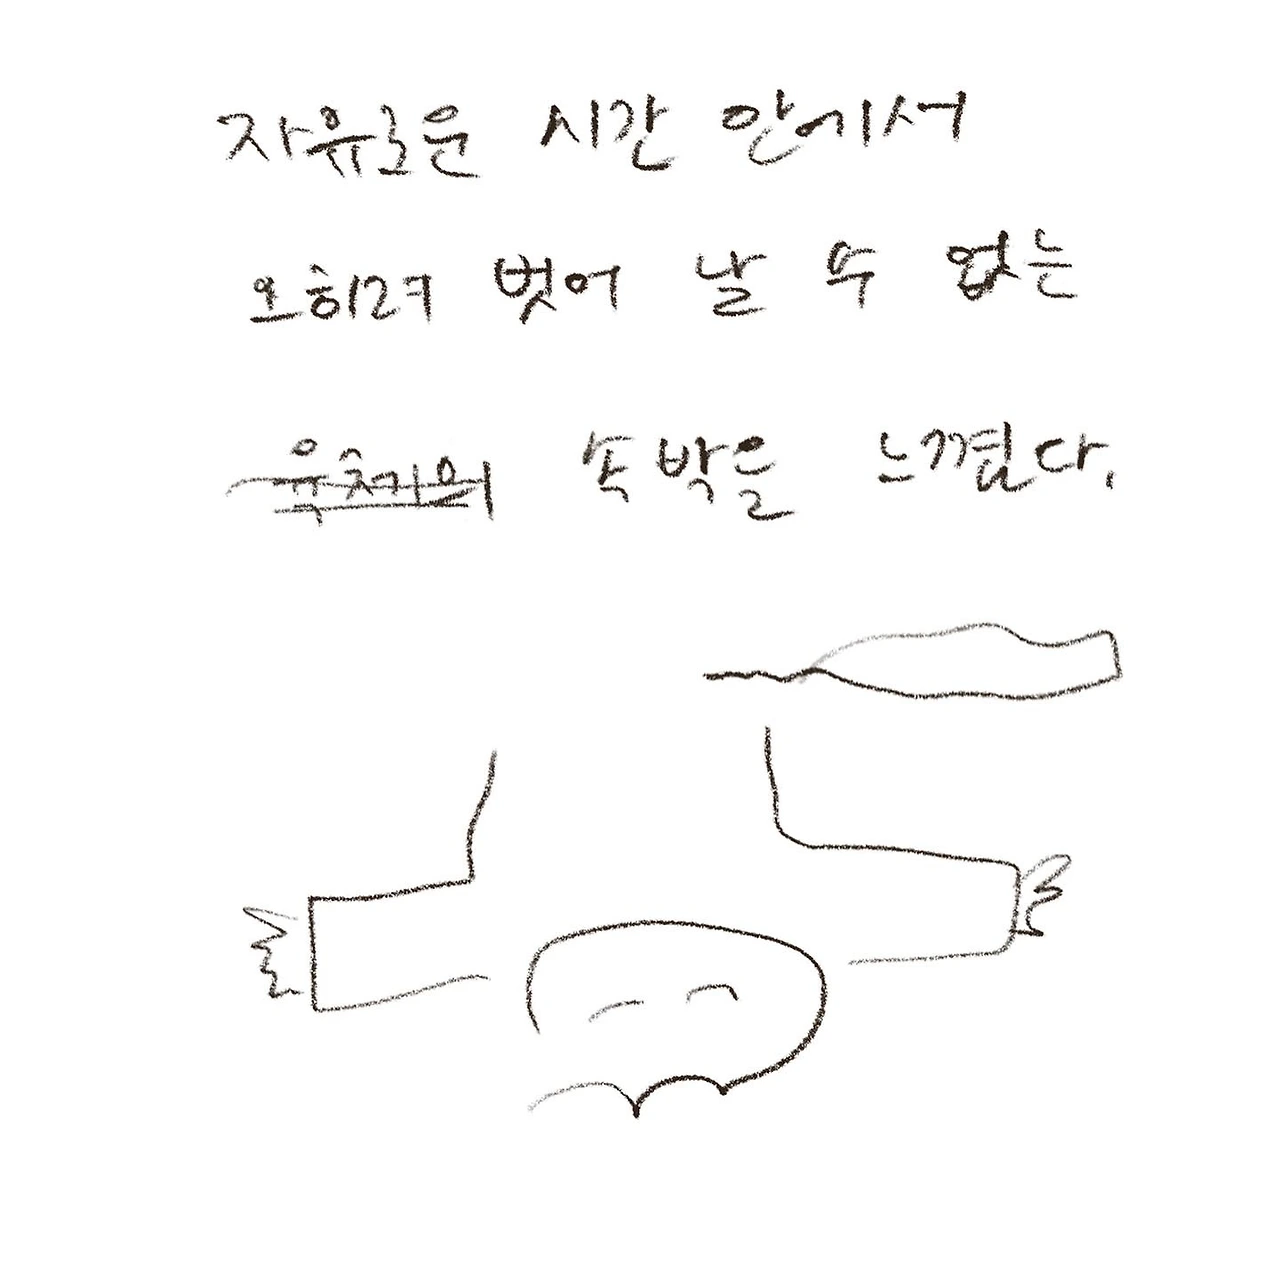 자유로운 시간 안에서
오히려 벗어 날 수 없는
속박을 느꼈다.